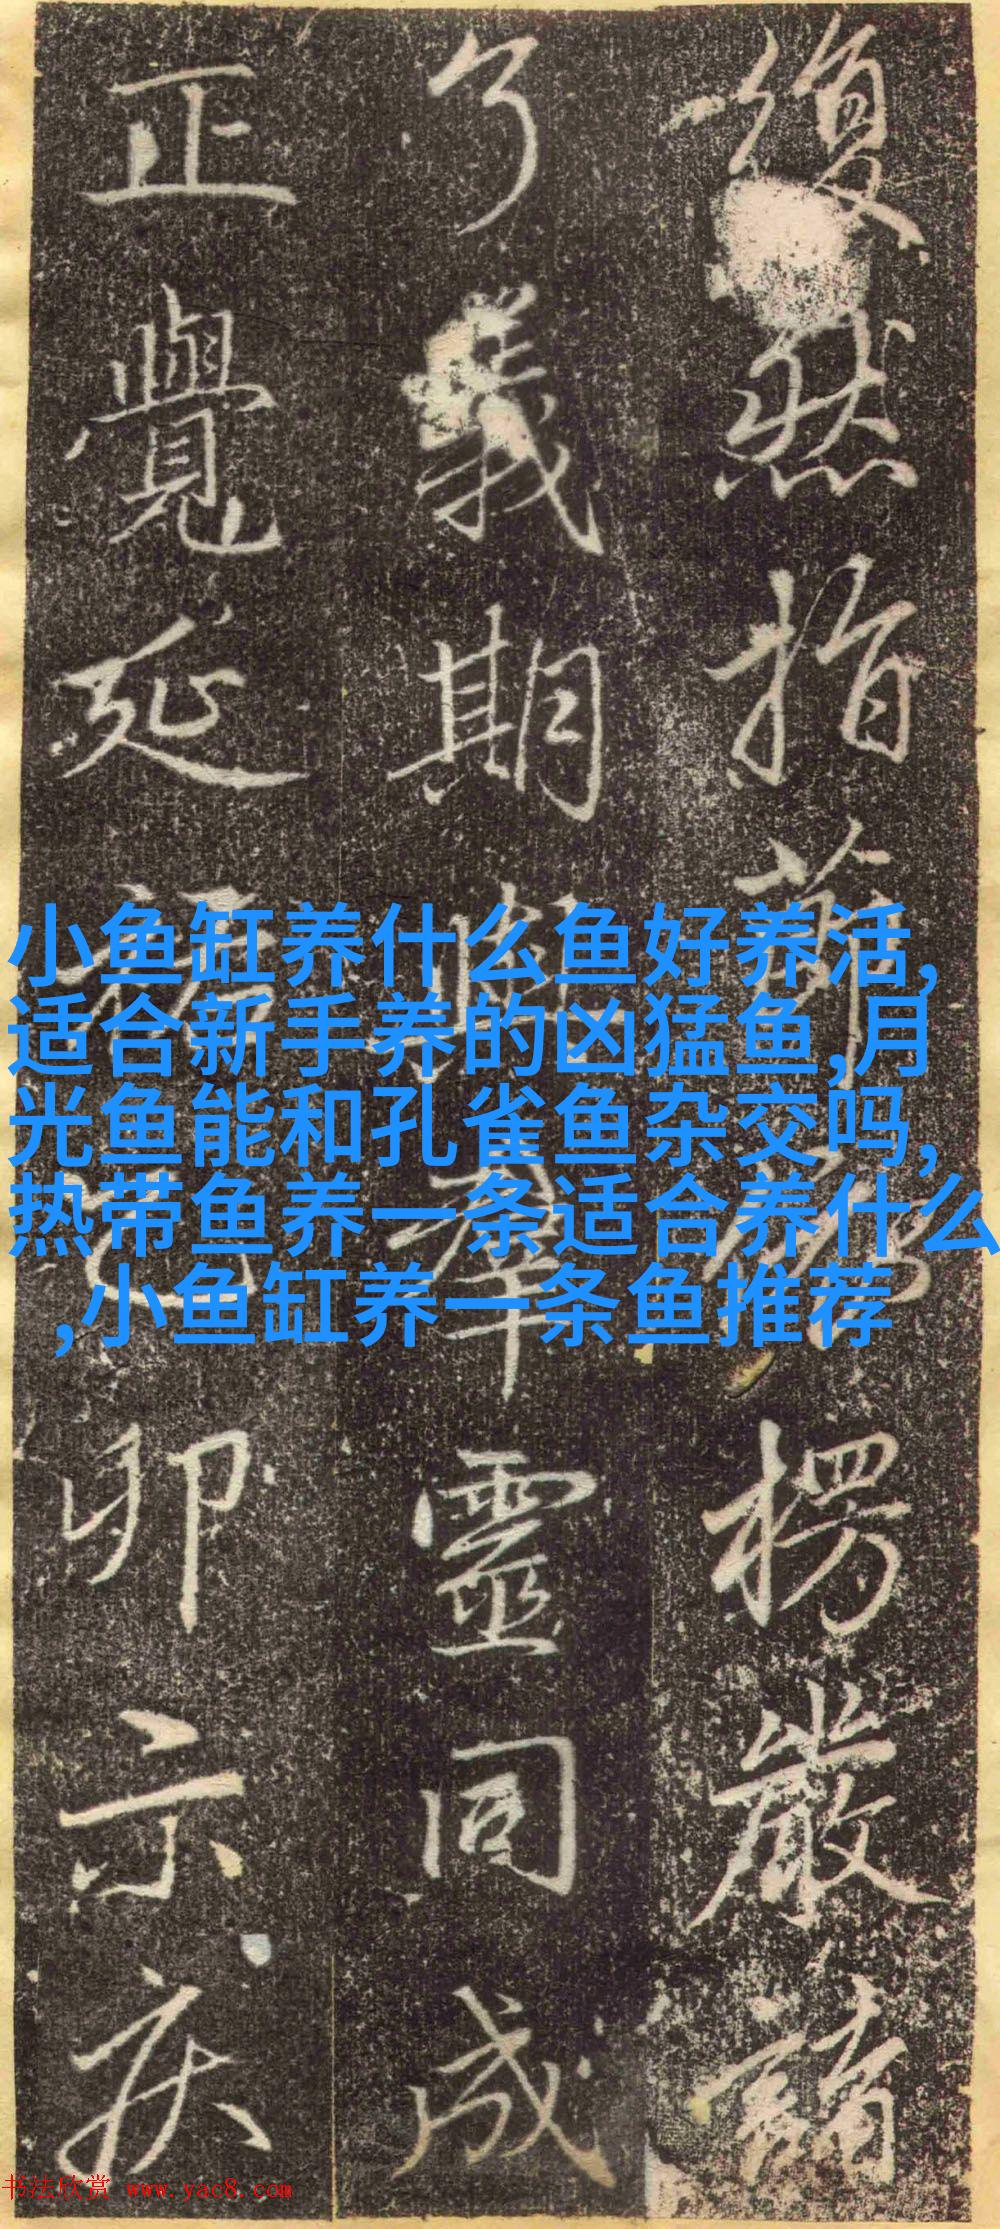 復然指楞嚴
了義期與羣靈同成
正覺延祐卯示疾
小鱼缸养什么鱼好养活,
适合新手养的凶猛鱼,月
光鱼能和孔雀鱼杂交吗,
热带鱼养一条适合养什么
,小鱼缸养一条鱼推荐
书法欣赏 www.yac8.com